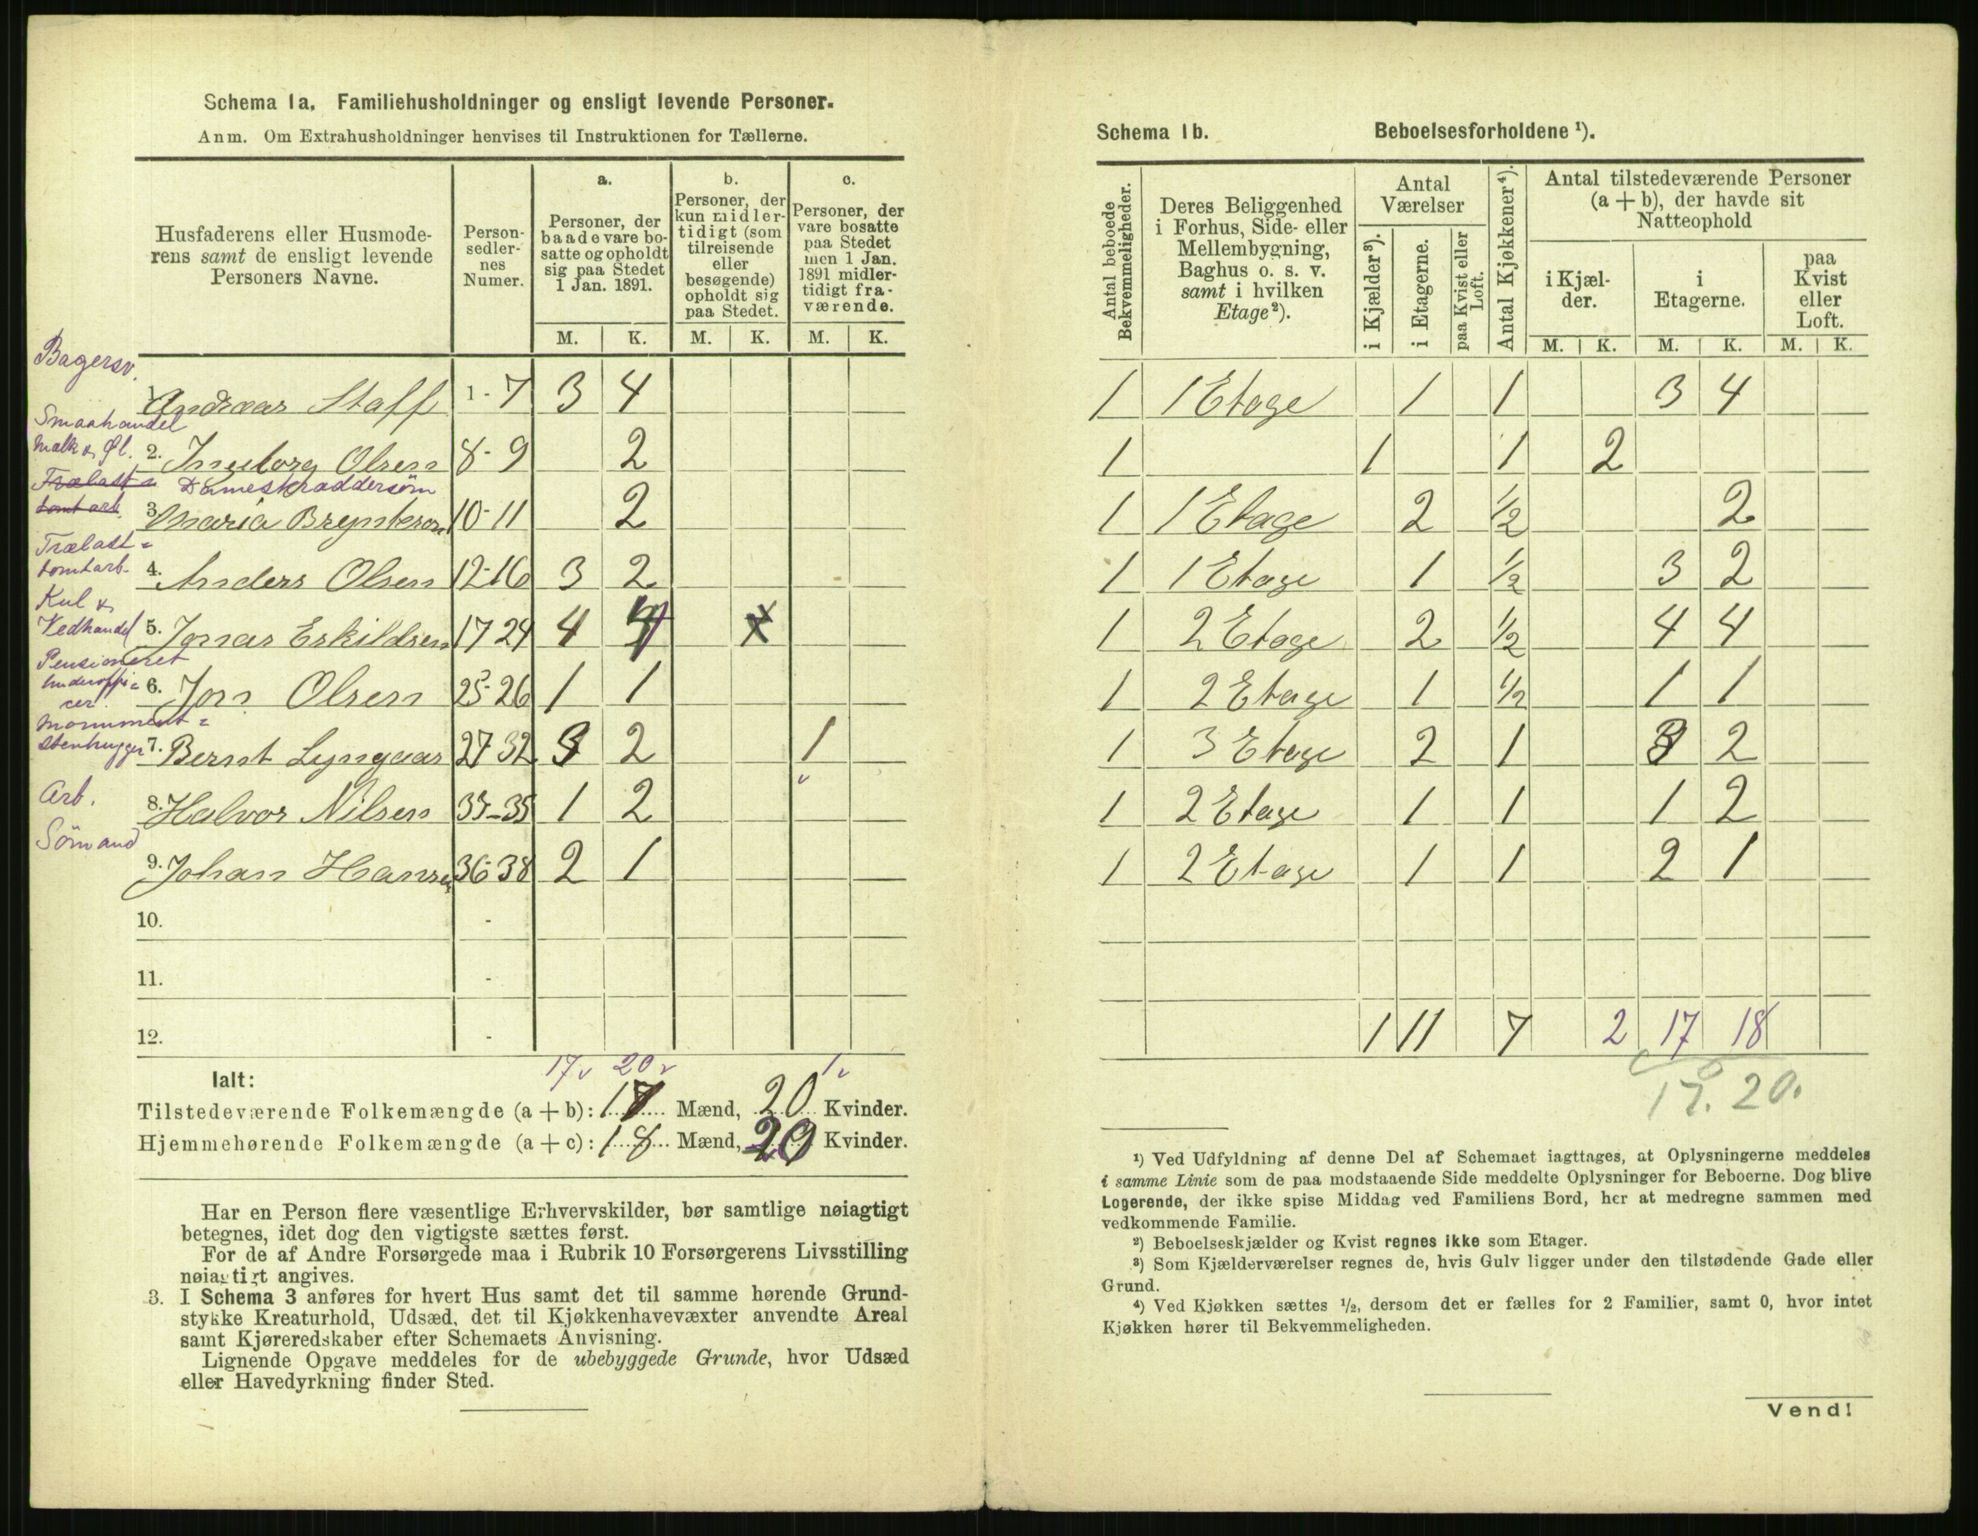 Schema 1a. Familiehusholdninger og ensligt levende Personer.
Anm. Om Extrahusholdninger henvises til Instruktionen for Tællerne.
Husfaderens eller Husmoderens samt de ensligt levende Personers Navne.
Personsedlernes Numer.
a. Personer, der baade vare bosatte og opholdt sig paa Stedet 1 Jan. 1891.
b. Personer, der kun midlertidigt (som tilreisende eller besøgende) opholdt sig paa Stedet.
c. Personer, der vare bosatte paa Stedet men 1 Jan. 1891 midlertidigt fraværende.
M. K. M. K. M. K.
Bagersv.
1. Andreas Staff 1-7 3 4
Smaahandel Mælk & Øl.
2. Ingeborg Olsen 8-9 2
Trælast= tomt arb. Dameskræddersøm
3. Maria Bryntesen 10-11 2
Trælast= tomtarb.
4. Anders Olsen 12-16 3 2
Kul & Vedhandel
5. Jonas Eskildsen 17-24 4 4
Pensioneret Underoffi=cer.
6. Jon Olsen 25-26 1 1
Monument= stenhugger
7. Bernt Lyngaas 27-32 3 2 1
Arb.
8. Halvor Nilsen 33-35 1 2
Sømand
9. Johan Hansen 36-38 2 1
10. -
11. -
12. -
17 20 1
Ialt:
Tilstedeværende Folkemængde (a + b): 17 Mænd, 20 Kvinder.
Hjemmehørende Folkemængde (a + c): 18 Mænd, 20 Kvinder.
Har en Person flere væsentlige Erhvervskilder, bør samtlige nøiagtigt
betegnes, idet dog den vigtigste sættes først.
For de af Andre Forsørgede maa i Rubrik 10 Forsørgerens Livsstilling
nøiagtigt angives.
3. I Schema 3 anføres for hvert Hus samt det til samme hørende Grund-
stykke Kreaturhold, Udsæd, det til Kjøkkenhavevæxter anvendte Areal
samt Kjøreredskaber efter Schemaets Anvisning.
Lignende Opgave meddeles for de ubebyggede Grunde, hvor Udsæd
eller Havedyrkning finder Sted.
Schema 1b. Beboelsesforholdene ¹).
Antal beboede Bekvemmeligheder.
Deres Beliggenhed i Forhus, Side- eller Mellembygning, Baghus o. s. v. samt i hvilken Etage²).
Antal Værelser
i Kjælder³). i Etagerne. paa Kvist eller Loft.
Antal Kjøkkener⁴).
Antal tilstedeværende Personer (a + b), der havde sit Natteophold
i Kjælder. i Etagerne. paa Kvist eller Loft.
M. K. M. K. M. K.
1 1 Etage 1 1 3 4
1 1 1 2
1 1 Etage 2 1/2 2
1 1 Etage 1 1/2 3 2
1 2 Etage 2 1/2 4 4
1 2 Etage 1 1/2 1 1
1 3 Etage 2 1 3 2
1 2 Etage 1 1 1 2
1 2 Etage 1 1 2 1
1 11 7 2 17 18
17. 20.
¹) Ved Udfyldning af denne Del af Schemaet iagttages, at Oplysningerne meddeles
i samme Linie som de paa modstaaende Side meddelte Oplysninger for Beboerne. Dog blive
Logerende, der ikke spise Middag ved Familiens Bord, her at medregne sammen med
vedkommende Familie.
²) Beboelseskjælder og Kvist regnes ikke som Etager.
³) Som Kjælderværelser regnes de, hvis Gulv ligger under den tilstødende Gade eller
Grund.
⁴) Ved Kjøkken sættes ½, dersom det er fælles for 2 Familier, samt 0, hvor intet
Kjøkken hører til Bekvemmeligheden.
Vend!